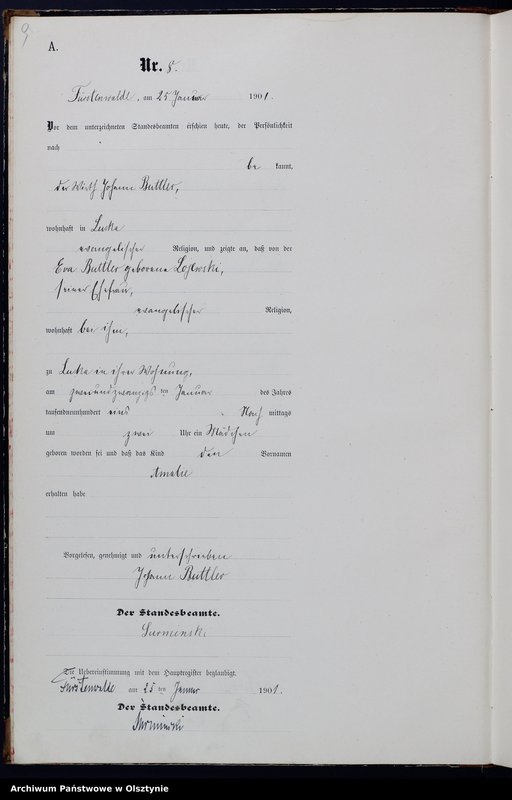 9
A.
Nr. 8.
Fürstenwalde, am 25 Januar 1901.
Vor dem unterzeichneten Standesbeamten erschien heute, der Persönlichkeit
nach
be kannt,
der Wirth Johann Buttler,
wohnhaft in Lucka
evangelischer Religion, und zeigte an, daß von der
Eva Buttler geborene
seiner Ehefrau,
evangelischer Religion,
wohnhaft bei ihm,
zu Lucka in ihrer Wohnung,
am zweiundzwanzigsten Januar des Jahres
tausendneunhundert eins Nach mittags
um zwei Uhr ein Mädchen
geboren worden sei und daß das Kind den Vornamen
Amalie
erhalten habe
Vorgelesen, genehmigt und unterschrieben
Johann Buttler
Der Standesbeamte.
Surminski
Die Uebereinstimmung mit dem Hauptregister beglaubigt.
Fürstenwalde am 25 ten Januar 1901.
Der Standesbeamte.
Surminski
Archiwum Państwowe w Olsztynie